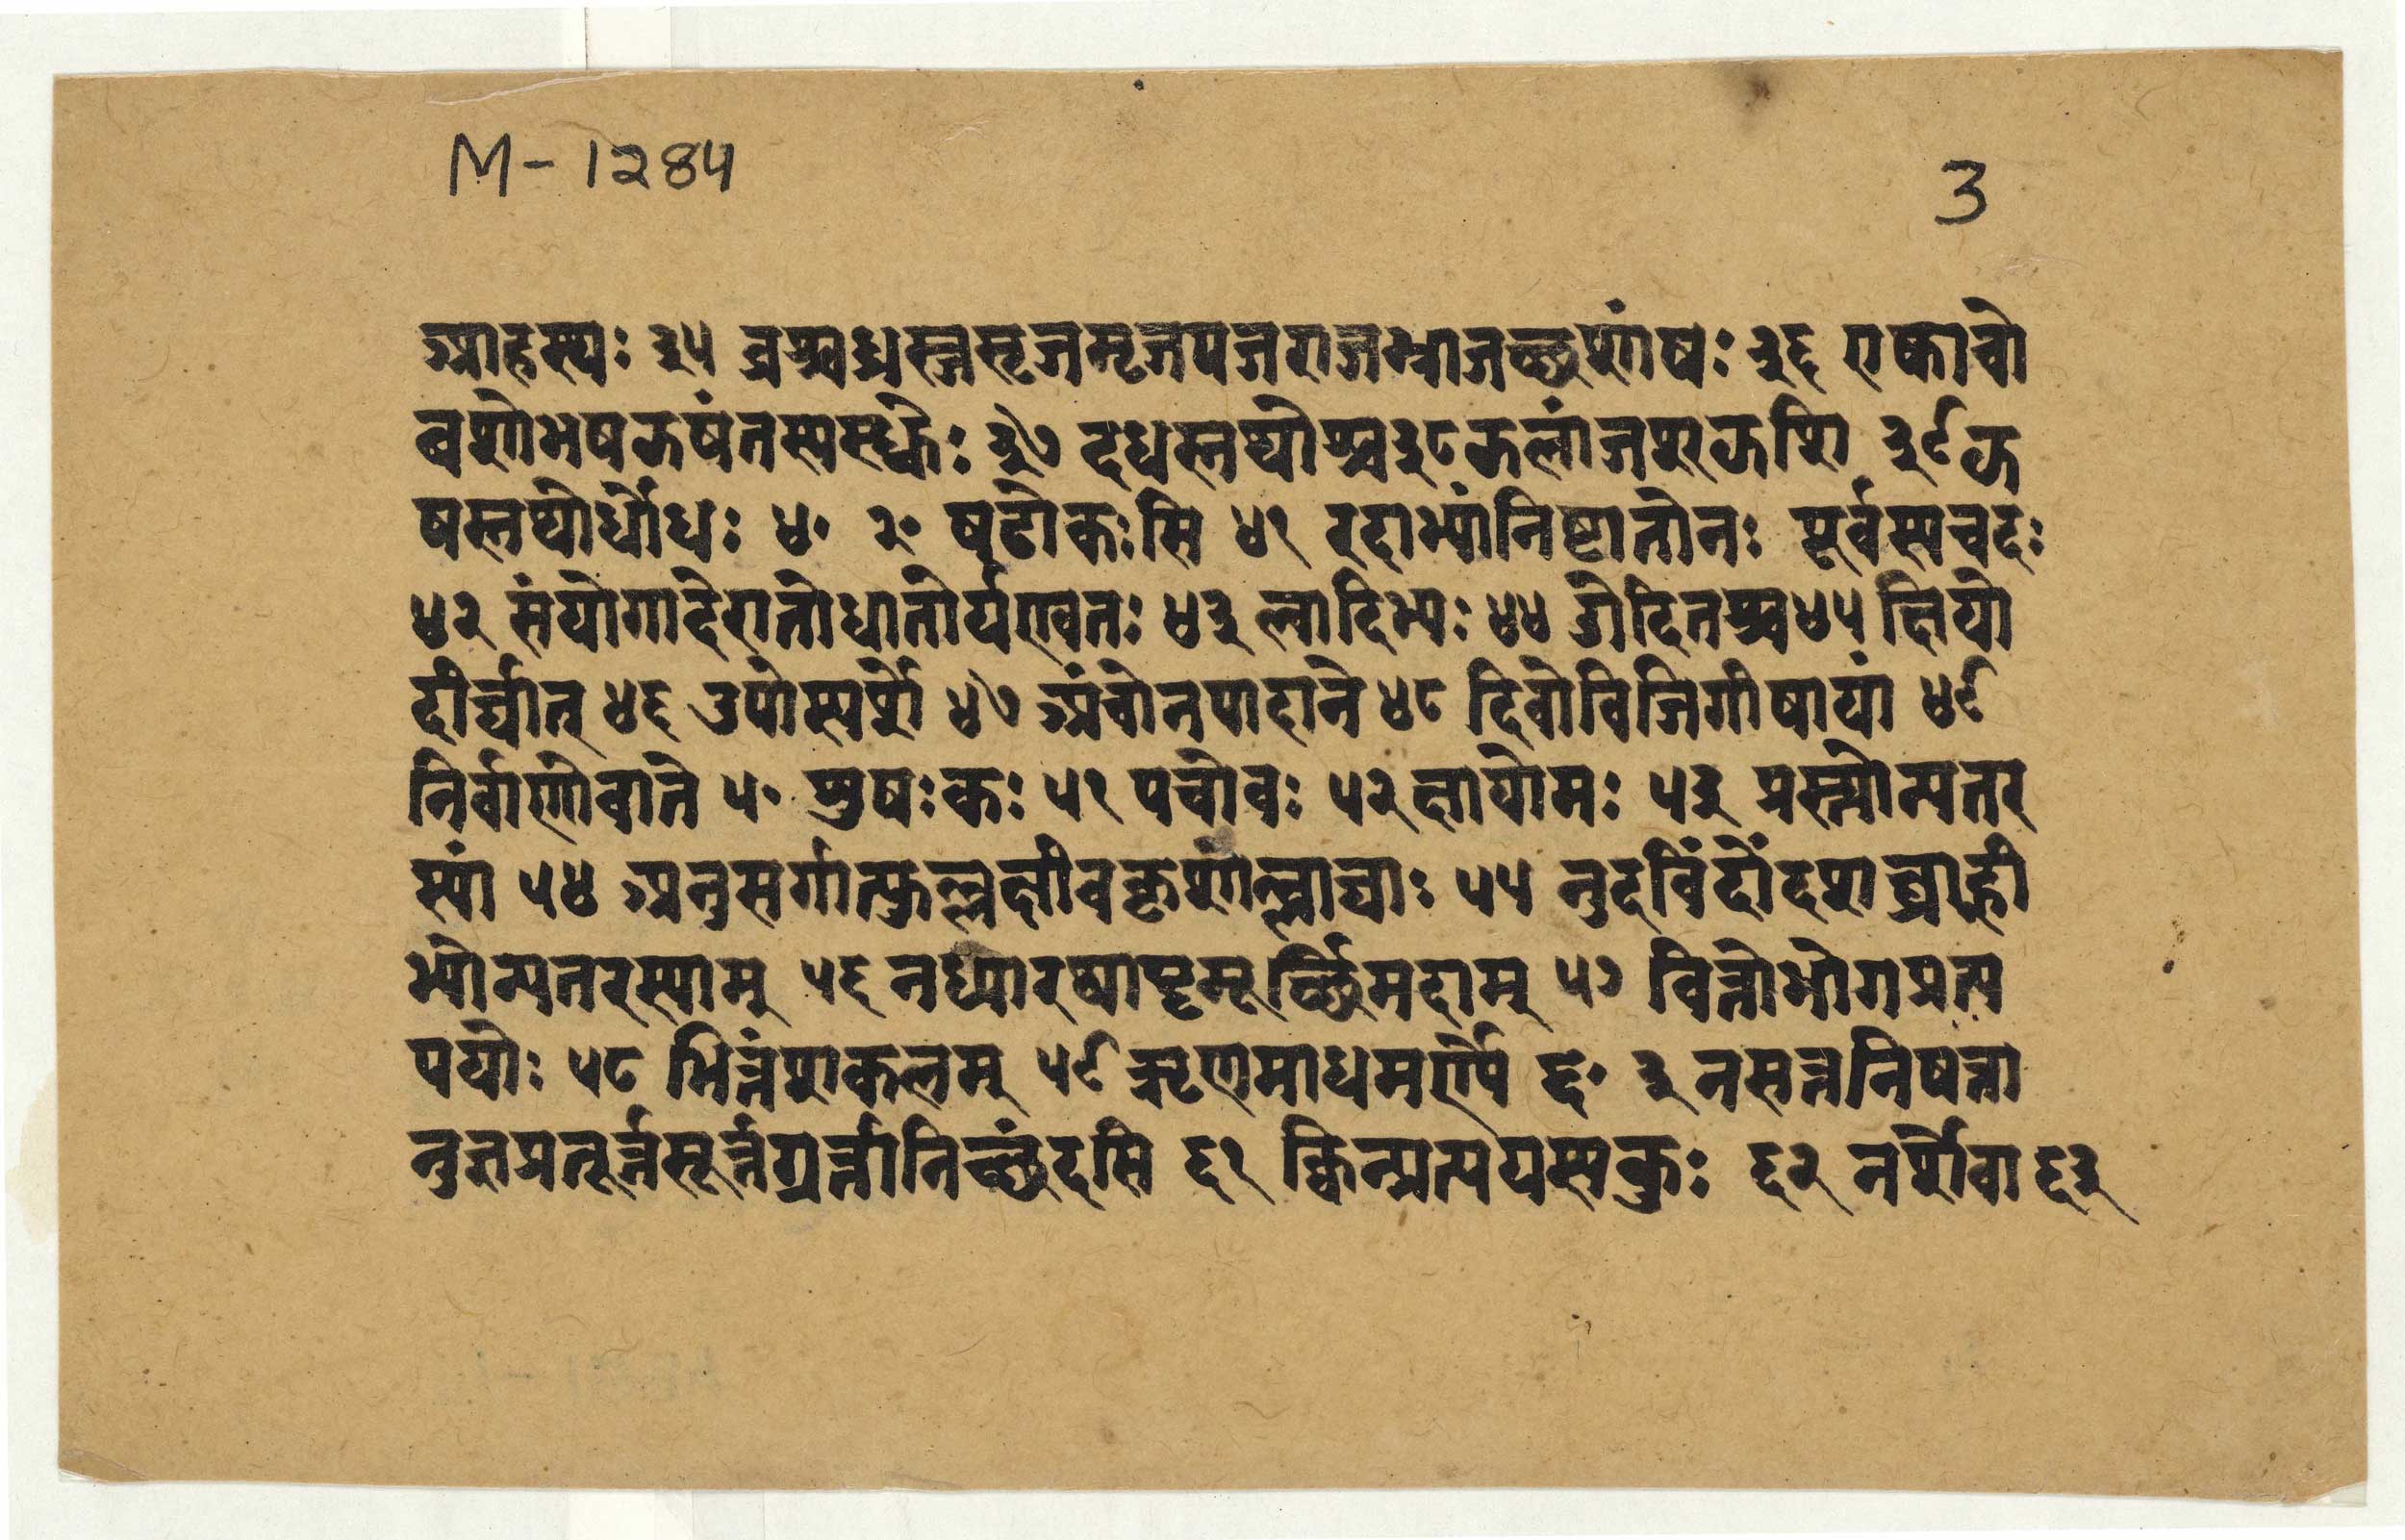 M-1284
3
आहस्थः ३५ व्रश्चभ्रस्जसृजमृजयजराजभ्राजच्छशांषः ३६ एकाचो
बशोभषझषंतस्यस्ध्वोः ३७ दधस्तथोश्च३८झलांजशझशि ३९झ
षस्तथोर्धोधः ४॰ २॰ षढोकःसि ४१ रदाभ्यांनिष्टातोनः पूर्वस्यचदः
४२ संयोगादेरातोधातोर्यण्वतः ४३ ल्वादिभ्यः ४४ ओदितश्च४५ क्षियो
दीर्घात् ४६ श्योस्पर्शे ४७ अंचोनपादाने ४८ दिवोविजिगीषायां ४९
निर्वाणोवाते ५॰ शुषःकः ५१ पचोवः ५२ क्षायोमः ५३ प्रस्त्योन्यतर
स्यां ५४ अनुसर्गात्फुल्लक्षीबकृशोल्लाघाः ५५ नुदविंदोंदत्राघ्राह्री
भ्योन्यतरस्याम् ५६ नध्याख्यापॄमूर्च्छिमदाम् ५७ वित्तोभोगप्रत्य
ययोः ५८ भित्तंशकलम् ५९ ऋणमाधमर्ण्ये ६॰ ३ नसत्तनिषत्ता
नुत्तप्रतूर्त्तसूर्त्तगूर्त्तानिच्छंदसि ६१ क्विन्प्रत्ययस्यकुः ६२ नशेर्वा ६३